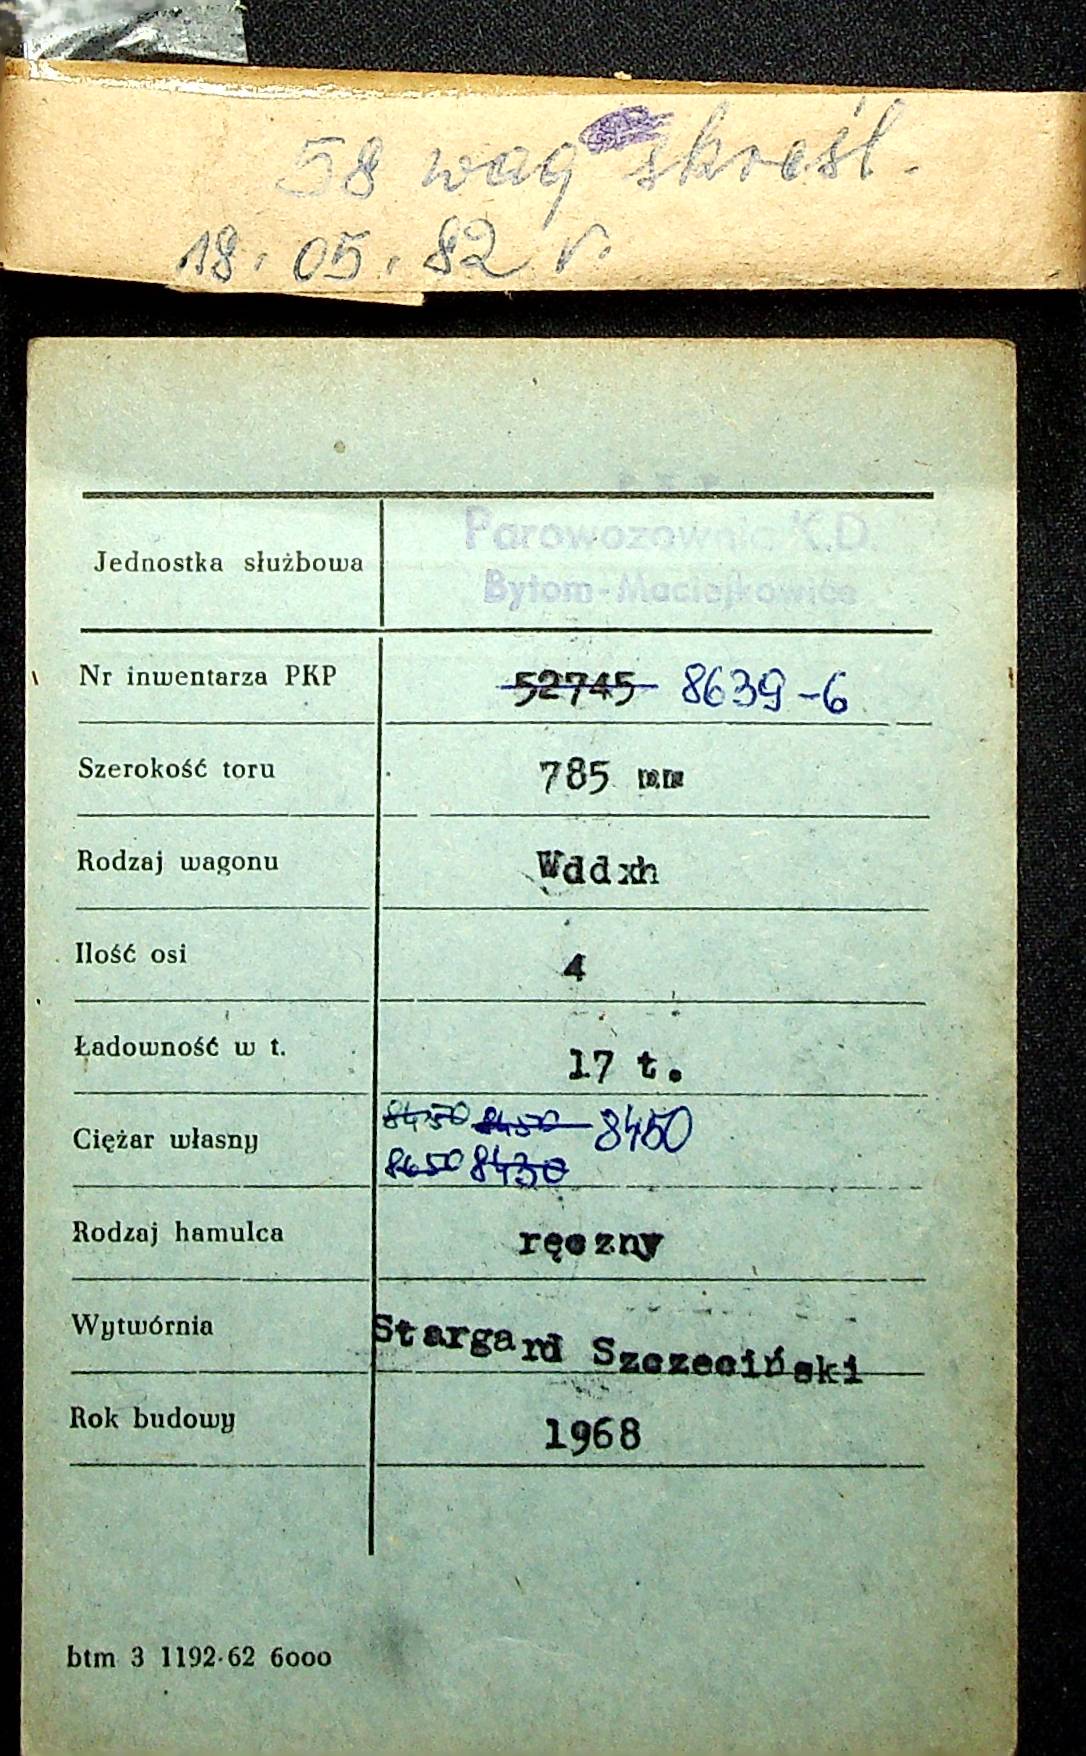 58 wag skreśl.
18.05.82 r.
P.K.P.
Parowozownia K.D.
Jednostka służbowa
Bytom-Maciejkowice
Nr inwentarza PKP 52745 8639-6
Szerokość toru 785 mm
Rodzaj wagonu Wddxh
Ilość osi 4
Ładowność w t. 17 t.
8450 8450 8450
Ciężar własny
8650 8430
Rodzaj hamulca ręczny
Wytwórnia Stargard Szczeciński
Rok budowy 1968
btm 3 1192-62 6000